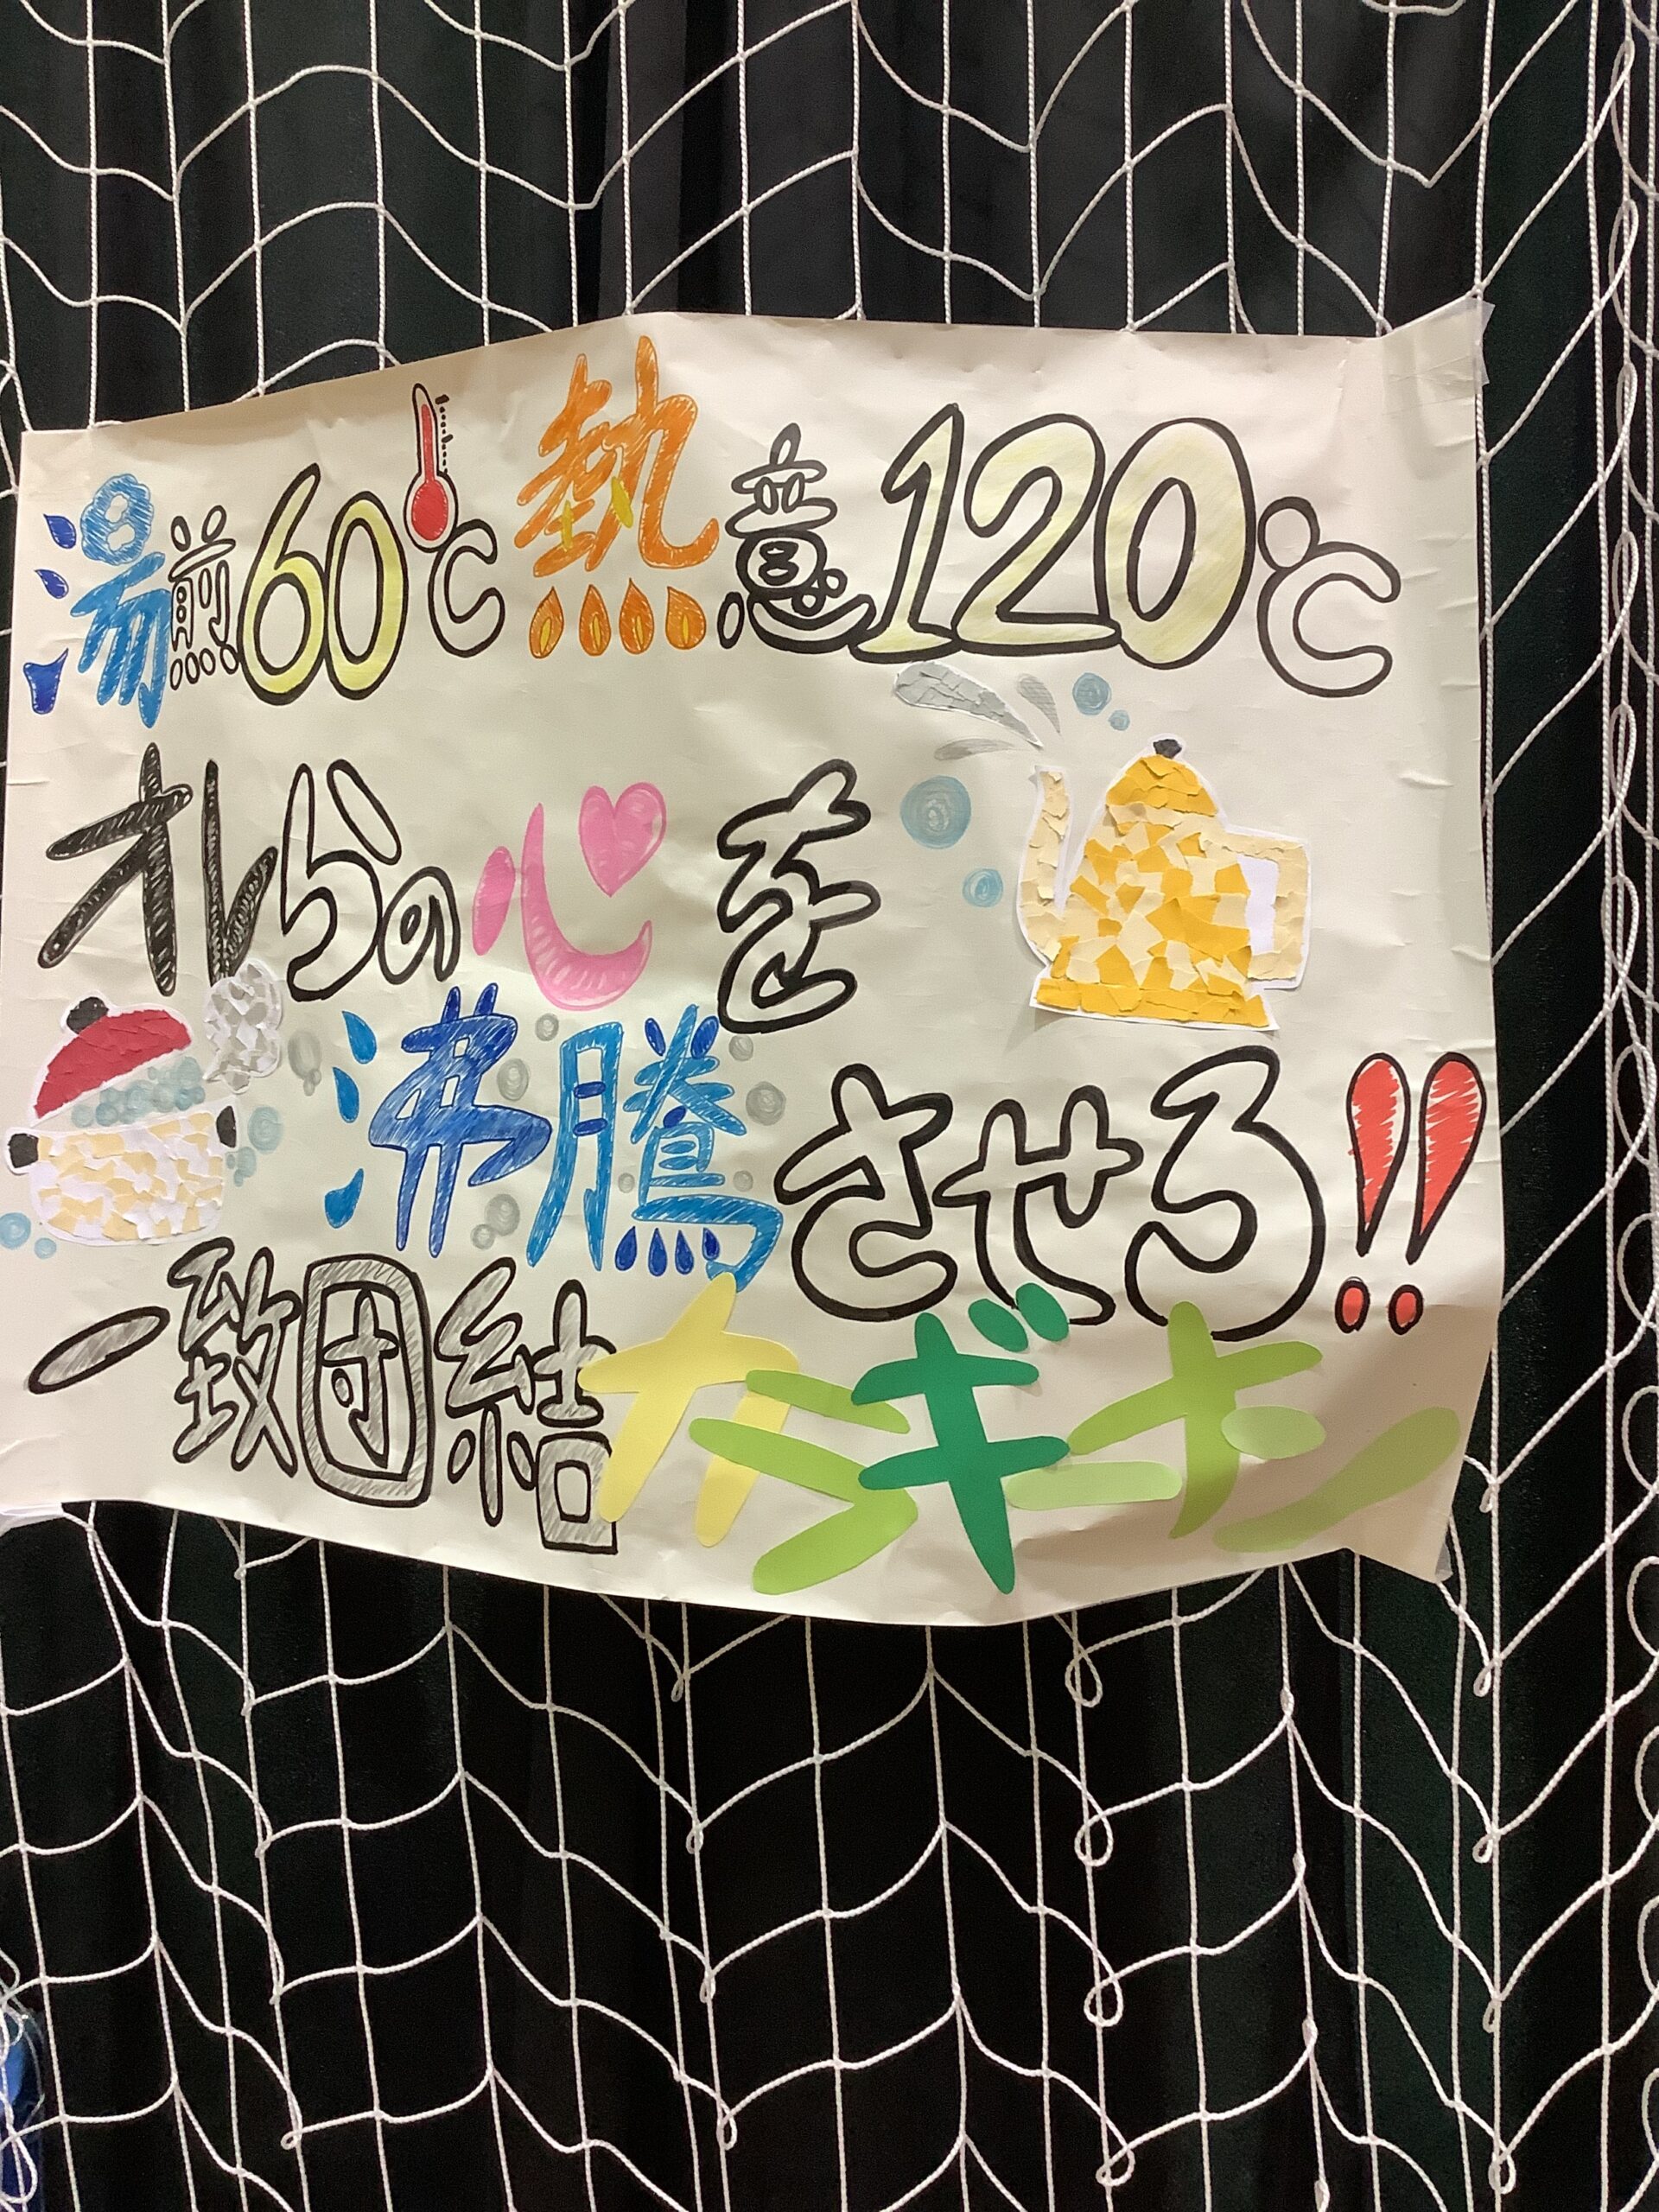 湯煎60℃熱意120℃
オレらの心を
沸騰させろ!!
一致団結カラギーナン